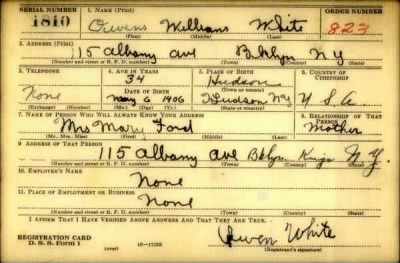 SERIAL NUMBER
1. NAME (Print)
ORDER NUMBER
1810 Owens William White 823
(First) (Middle) (Last)
2. ADDRESS (Print)
15 Albany Ave Bklyn NY
(Number and street or R. F. D. number) (Town) (County) (State)
3. TELEPHONE
4. AGE IN YEARS
5. PLACE OF BIRTH
6. COUNTRY OF CITIZENSHIP
34
Hudson
DATE OF BIRTH
(Town or county)
None May 6 1906 Hudson NY U S A
(Exchange) (Number) (Mo.) (Day) (Yr.) (State or country)
7. NAME OF PERSON WHO WILL ALWAYS KNOW YOUR ADDRESS
8. RELATIONSHIP OF THAT PERSON
Mrs Mary Ford Mother
(Mr., Mrs., Miss) (First) (Middle) (Last)
9. ADDRESS OF THAT PERSON
115 Albany Ave Bklyn Kings N.Y.
(Number and street or R. F. D. number) (Town) (County) (State)
10. EMPLOYER'S NAME
None
11. PLACE OF EMPLOYMENT OR BUSINESS
None
(Number and street or R. F. D. number) (Town) (County) (State)
I AFFIRM THAT I HAVE VERIFIED ABOVE ANSWERS AND THAT THEY ARE TRUE.
REGISTRATION CARD
D. S. S. Form 1
16—17105
Owen White
(Registrant's signature)